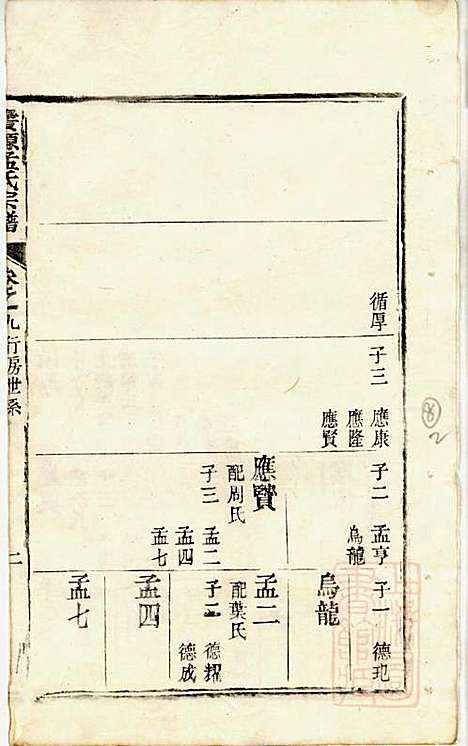 循厚
子三 應康
應隆
應賢
子二 孟亨
烏龍
應賢
配周氏
子三 孟二
孟四
孟七
子一 德玘
烏龍
孟二
配葉氏
子二 德耀
德成
孟四
孟七
源孟氏宗譜
卷之一九行房世系
二
⑧
2